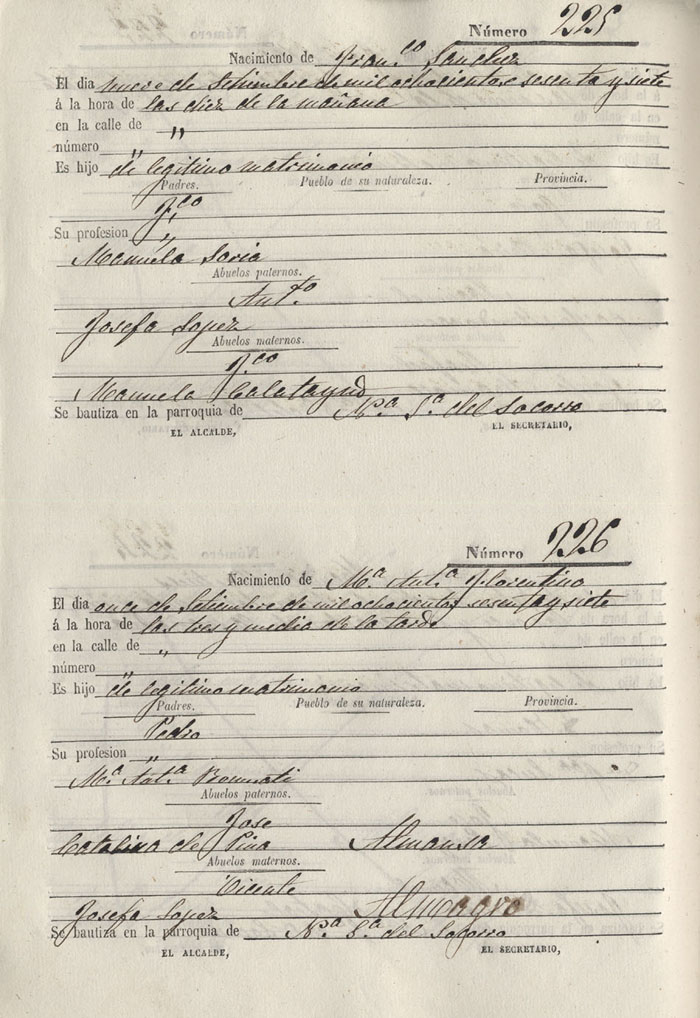 Número 225
Nacimiento de Fran.co Sanchez
El dia nueve de Setiembre de mil ochocientos sesenta y siete
á la hora de las diez de la mañana
en la calle de "
número "
Es hijo de legitimo matrimonio
Padres. Pueblo de su naturaleza. Provincia.
F.co
Su profesion "
Manuela Soria
Abuelos paternos.
Ant.o
Josefa Lopez
Abuelos maternos.
F.co
Manuela Calatayud
Se bautiza en la parroquia de N.a S.a del Socorro
EL ALCALDE, EL SECRETARIO,
Número 226
Nacimiento de M.a Ant.a Florentino
El dia once de Setiembre de mil ochocientos sesenta y siete
á la hora de las tres y media de la tarde
en la calle de "
número "
Es hijo de legitimo matrimonio
Padres. Pueblo de su naturaleza. Provincia.
Pedro
Su profesion "
M.a Ant.a
Abuelos paternos.
Jose
Catalina de Pina Almansa
Abuelos maternos.
Vicente
Josefa Lopez Almagro
Se bautiza en la parroquia de N.a S.a del Socorro
EL ALCALDE, EL SECRETARIO,